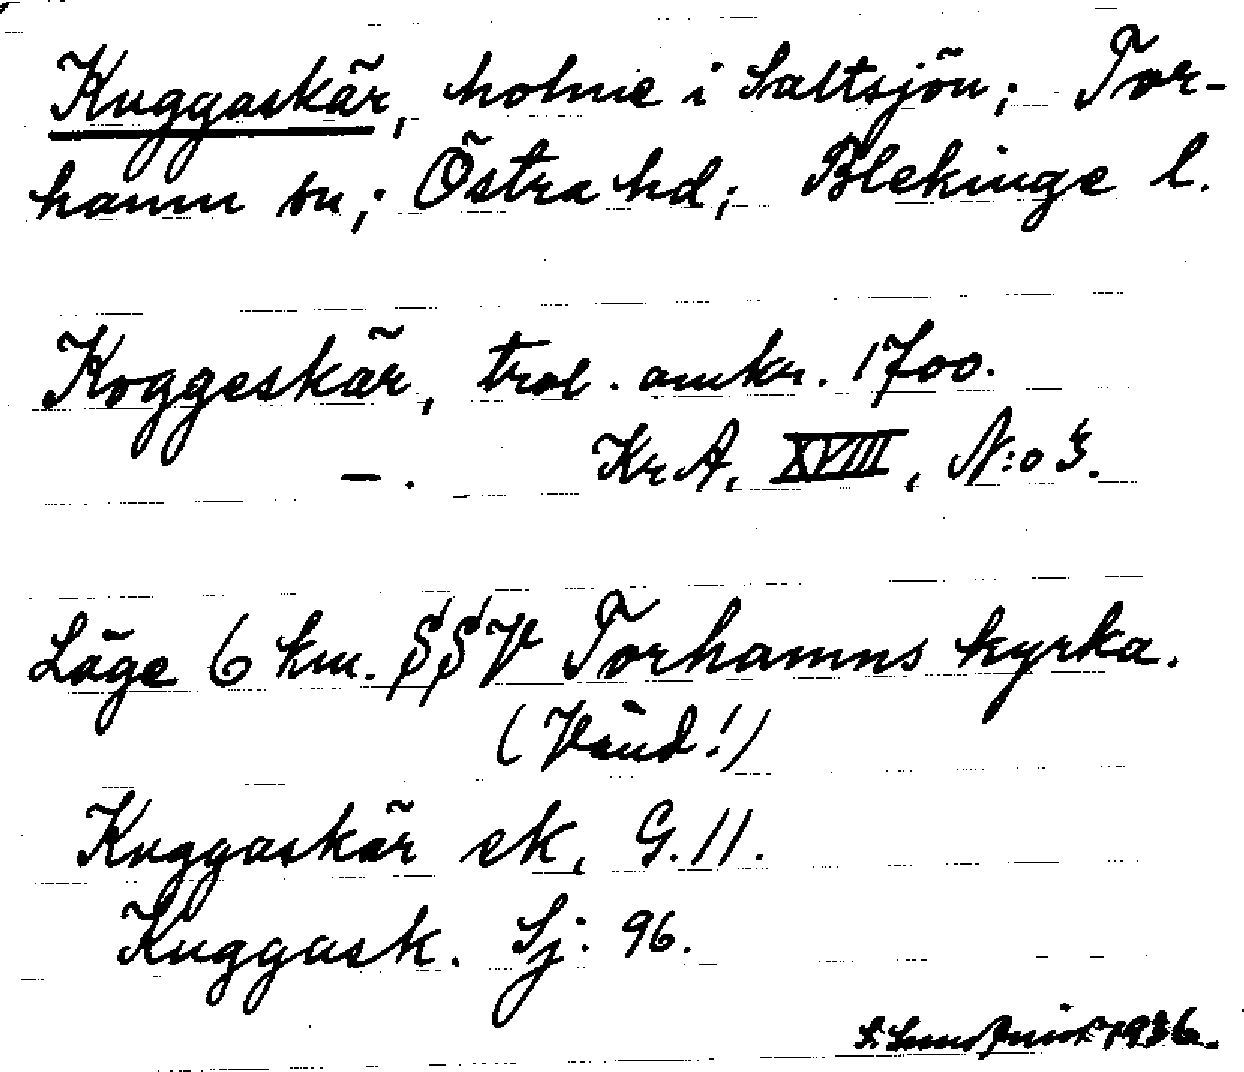 Kuggaskär, holme i Saltsjön; Tor-
hamn sn; Östra hd; Blekinge l.
Koggeskär, trol. omkr. 1700.
— . KrA, XVIII, N:o 3.
Läge 6 km. SSV Torhamns kyrka.
(Vänd!)
Kuggaskär ek, G. 11.
Kuggask. Sj. 96.
1936.